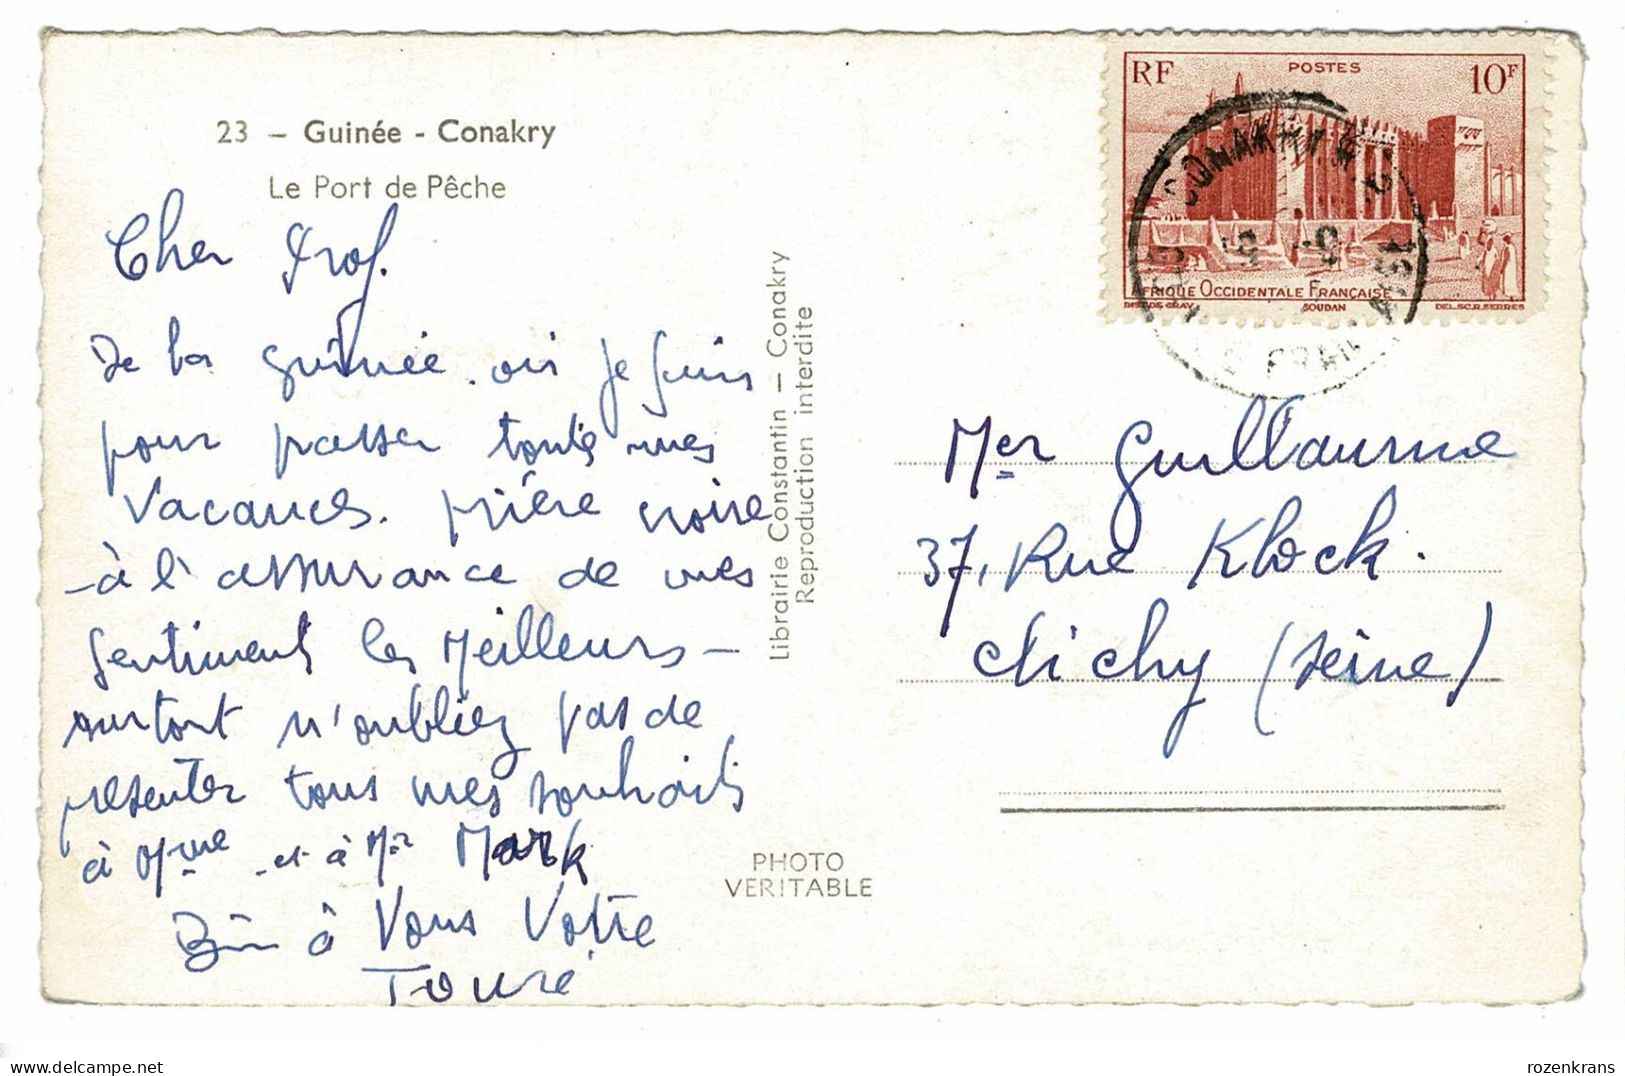 23 – Guinée - Conakry
Le Port de Pêche
Cher Prof.
De la guinée où je suis
pour passer toute mes
Vacances. prière croire
à l'assurance de mes
Sentiments les Meilleurs –
surtout n'oubliez pas de
presenter tous mes souhaits
à Mme et à Mr Mark
Bien à Vous Votre
Touré
Librairie Constantin — Conakry
Reproduction interdite
PHOTO
VERITABLE
RF POSTES 10F
AFRIQUE OCCIDENTALE FRANÇAISE
SOUDAN
CONAKRY R.P.
Mer Guillaume
37, Rue Klock.
Clichy (Seine)
rozenkrans
delcampe.net